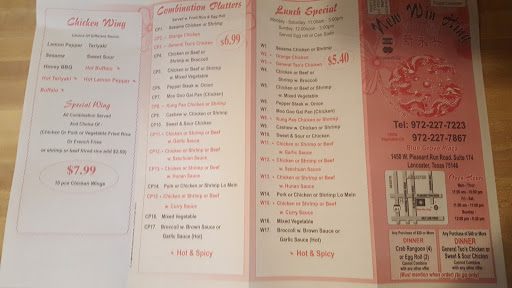 Chicken Wing
Choice Of Different Flavor
Lemon Pepper Teriyaki
Sesame Sweet Sour
Honey BBQ Hot Buffalo
Hot Teriyaki Hot Lemon Pepper
Buffalo
Special Wing
All Combination Served
And Choice Of
(Chicken Or Pork or Vegetable Fried Rice
Or French Fries
or shrimp or beef fried rice add $2.00)
$7.99
10 pcs Chicken Wings
Combination Platters
Served w. Fried Rice & Egg Roll
$6.99
CP1. Sesame Chicken or Shrimp
CP2. Orange Chicken
CP3. General Tso's Chicken
CP4. Chicken or Beef or
Shrimp w. Broccoli
CP5. Chicken or Beef or Shrimp
w. Mixed Vegetable
CP6. Pepper Steak w. Onion
CP7. Moo Goo Gai Pan (Chicken)
CP8. Kung Pao Chicken or Shrimp
CP9. Cashew w. Chicken or Shrimp
CP10. Sweet & Sour Chicken
CP11. Chicken or Shrimp or Beef
w. Garlic Sauce
CP12. Chicken or Shrimp or Beef
w. Szechuan Sauce
CP13. Chicken or Shrimp or Beef
w. Hunan Sauce
CP14. Pork or Chicken or Shrimp Lo Mein
CP15. Chicken or Shrimp or Beef
w. Curry Sauce
CP16. Mixed Vegetable
CP17. Broccoli w. Brown Sauce or
Garlic Sauce (Hot)
Hot & Spicy
Lunch Special
Served Egg roll or Crab
$5.40
W1. Sesame Chicken or Shrimp
W2. Orange Chicken
W3. General Tso's Chicken
W4. Chicken or Beef or
Shrimp w. Broccoli
W5. Chicken or Beef or Shrimp
w. Mixed Vegetable
W6. Pepper Steak w. Onion
W7. Moo Goo Gai Pan (Chicken)
W8. Kung Pao Chicken or Shrimp
W9. Cashew w. Chicken or Shrimp
W10. Sweet & Sour Chicken
W11. Chicken or Shrimp or Beef
w. Garlic Sauce
W12. Chicken or Shrimp or Beef
w. Szechuan Sauce
W13. Chicken or Shrimp or Beef
w. Hunan Sauce
W14. Pork or Chicken or Shrimp Lo Mein
W15. Chicken or Shrimp or Beef
w. Curry Sauce
W16. Mixed Vegetable
W17. Broccoli w. Brown Sauce or
Garlic Sauce (Hot)
Hot & Spicy
New Win Hing
Tel: 972-227-7223
972-227-7867
Blue Grove Plaza
1450 W. Pleasant Run Road, Suite 174
Lancaster, Texas 75146
Open Hours
Any Purchase of $30 or More
DINNER
Crab Rangoon (4)
or Egg Roll (2)
Cannot Combine
with any other offer
Any Purchase of $40 or More
DINNER
General Tso's Chicken or
Sweet & Sour Chicken
Cannot Combine
with any other offer
(Must mention when order) (to go only)